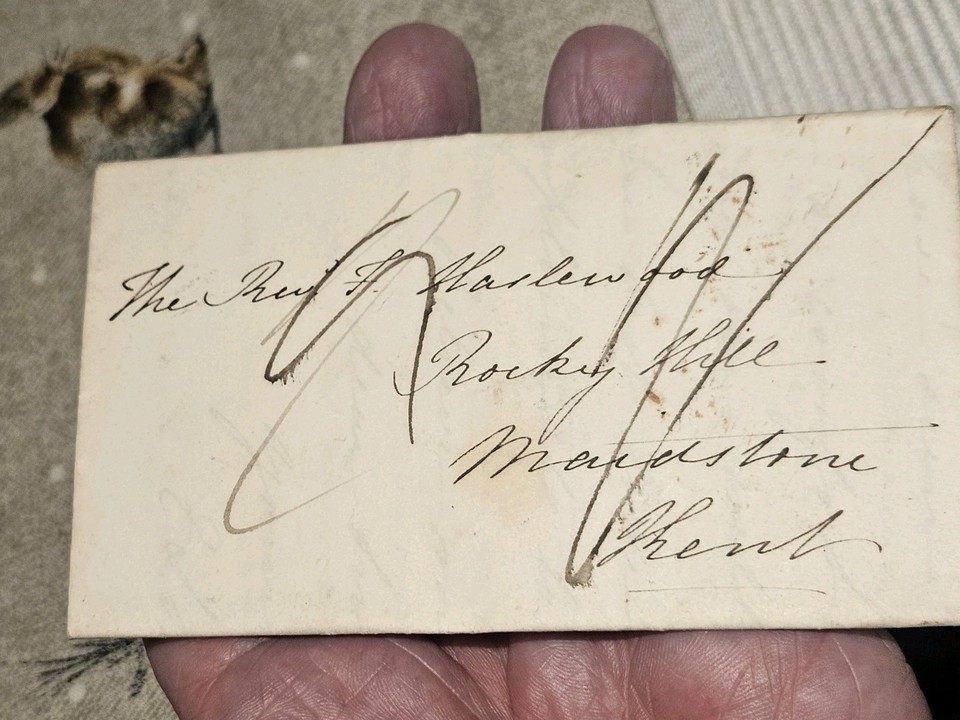 The Rev F. Haslewood
Rocky Hill
Maidstone
Kent